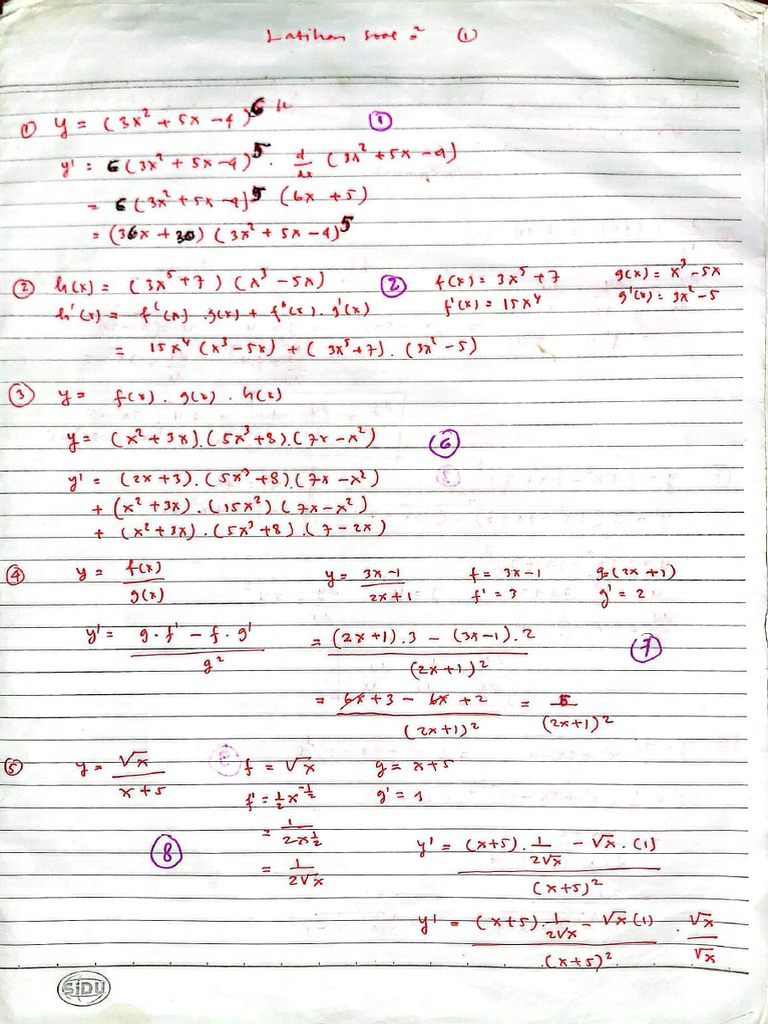 Latihan soal² ①
① y = (3x² + 5x - 4)⁶ ①
y' = 6(3x² + 5x - 4)⁵ . d/dx (3x² + 5x - 4)
= 6(3x² + 5x - 4)⁵ (6x + 5)
= (36x + 30) (3x² + 5x - 4)⁵
② h(x) = (3x⁵ + 7) (x³ - 5x) ② f(x) = 3x⁵ + 7 g(x) = x³ - 5x
h'(x) = f'(x) . g(x) + f(x) . g'(x) f'(x) = 15x⁴ g'(x) = 3x² - 5
= 15x⁴ (x³ - 5x) + (3x⁵ + 7) . (3x² - 5)
③ y = f(x) . g(x) . h(x)
y = (x² + 3x).(5x³ + 8).(7x - x²) ⑥
y' = (2x + 3).(5x³ + 8).(7x - x²)
+ (x² + 3x) . (15x²) (7x - x²)
+ (x² + 3x) . (5x³ + 8) . (7 - 2x)
④ y = f(x)/g(x) y = 3x-1/2x+1 f = 3x-1 g=(2x+1)
f' = 3 g' = 2
y' = g . f' - f . g'/g² = (2x+1).3 - (3x-1).2/(2x+1)² ⑦
= 6x + 3 - 6x + 2/(2x+1)² = 5/(2x+1)²
⑤ y = √x/x+5 f = √x g = x+5
f' = ½x^-½ g' = 1
⑧ = 1/2x^½
= 1/2√x
y' = (x+5) . 1/2√x - √x . (1)/(x+5)²
y' = (x+5) . 1/2√x - √x (1)/(x+5)² . √x/√x
SiDU